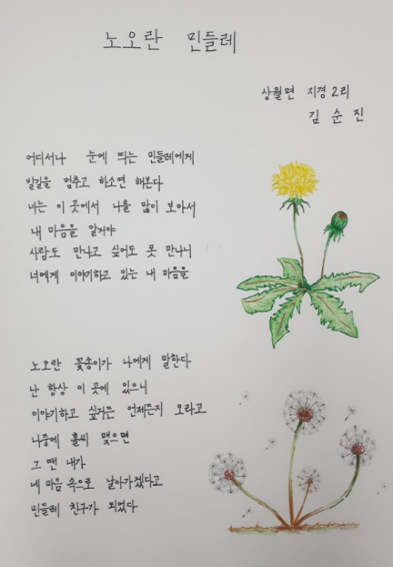 노오란 민들레
상월면 지경2리
김순진
어디서나 눈에 띄는 민들레에게
발길을 멈추고 하소연 해본다
너는 이 곳에서 나를 많이 보아서
내 마음을 알거야
사람도 만나고 싶어도 못 만나니
너에게 이야기하고 있는 내 마음을
노오란 꽃송이가 나에게 말한다
난 항상 이 곳에 있으니
이야기하고 싶거든 언제든지 오라고
나중에 홀씨 맺으면
그 땐 내가
네 마음 속으로 날아가겠다고
민들레 친구가 되었다